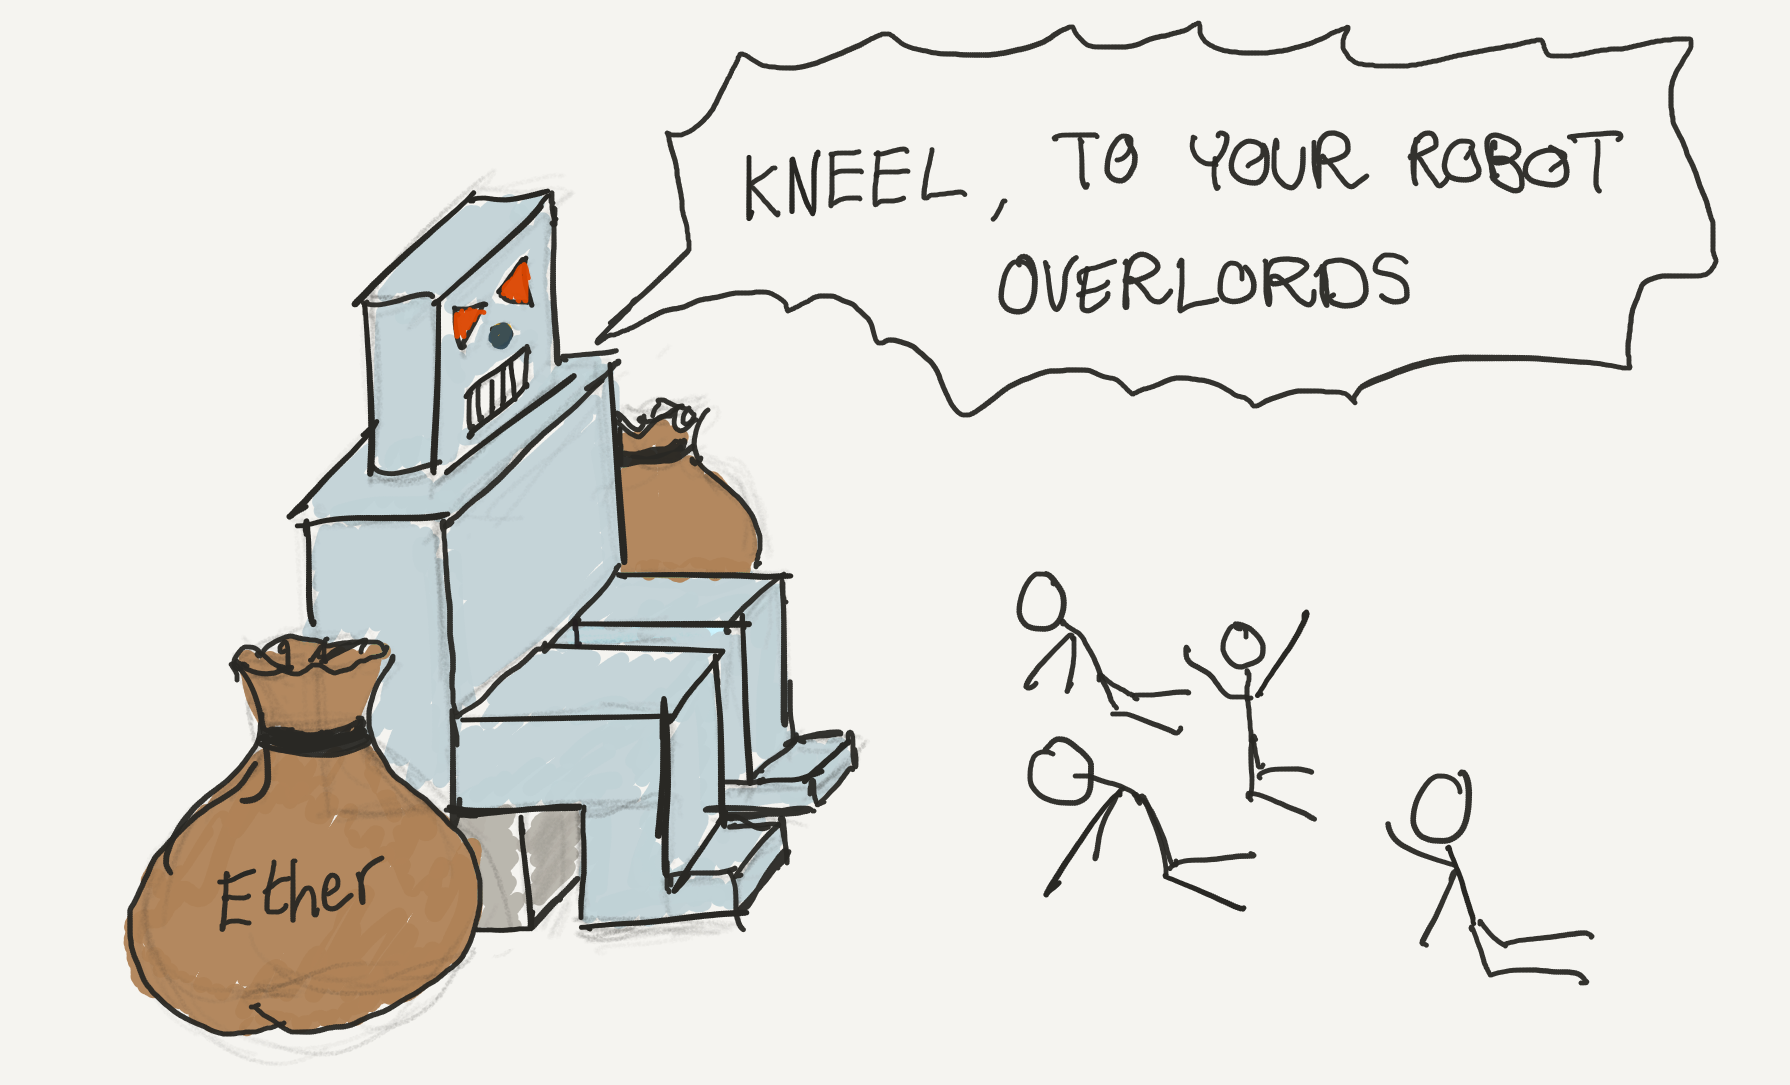 KNEEL, TO YOUR ROBOT
OVERLORDS
Ether